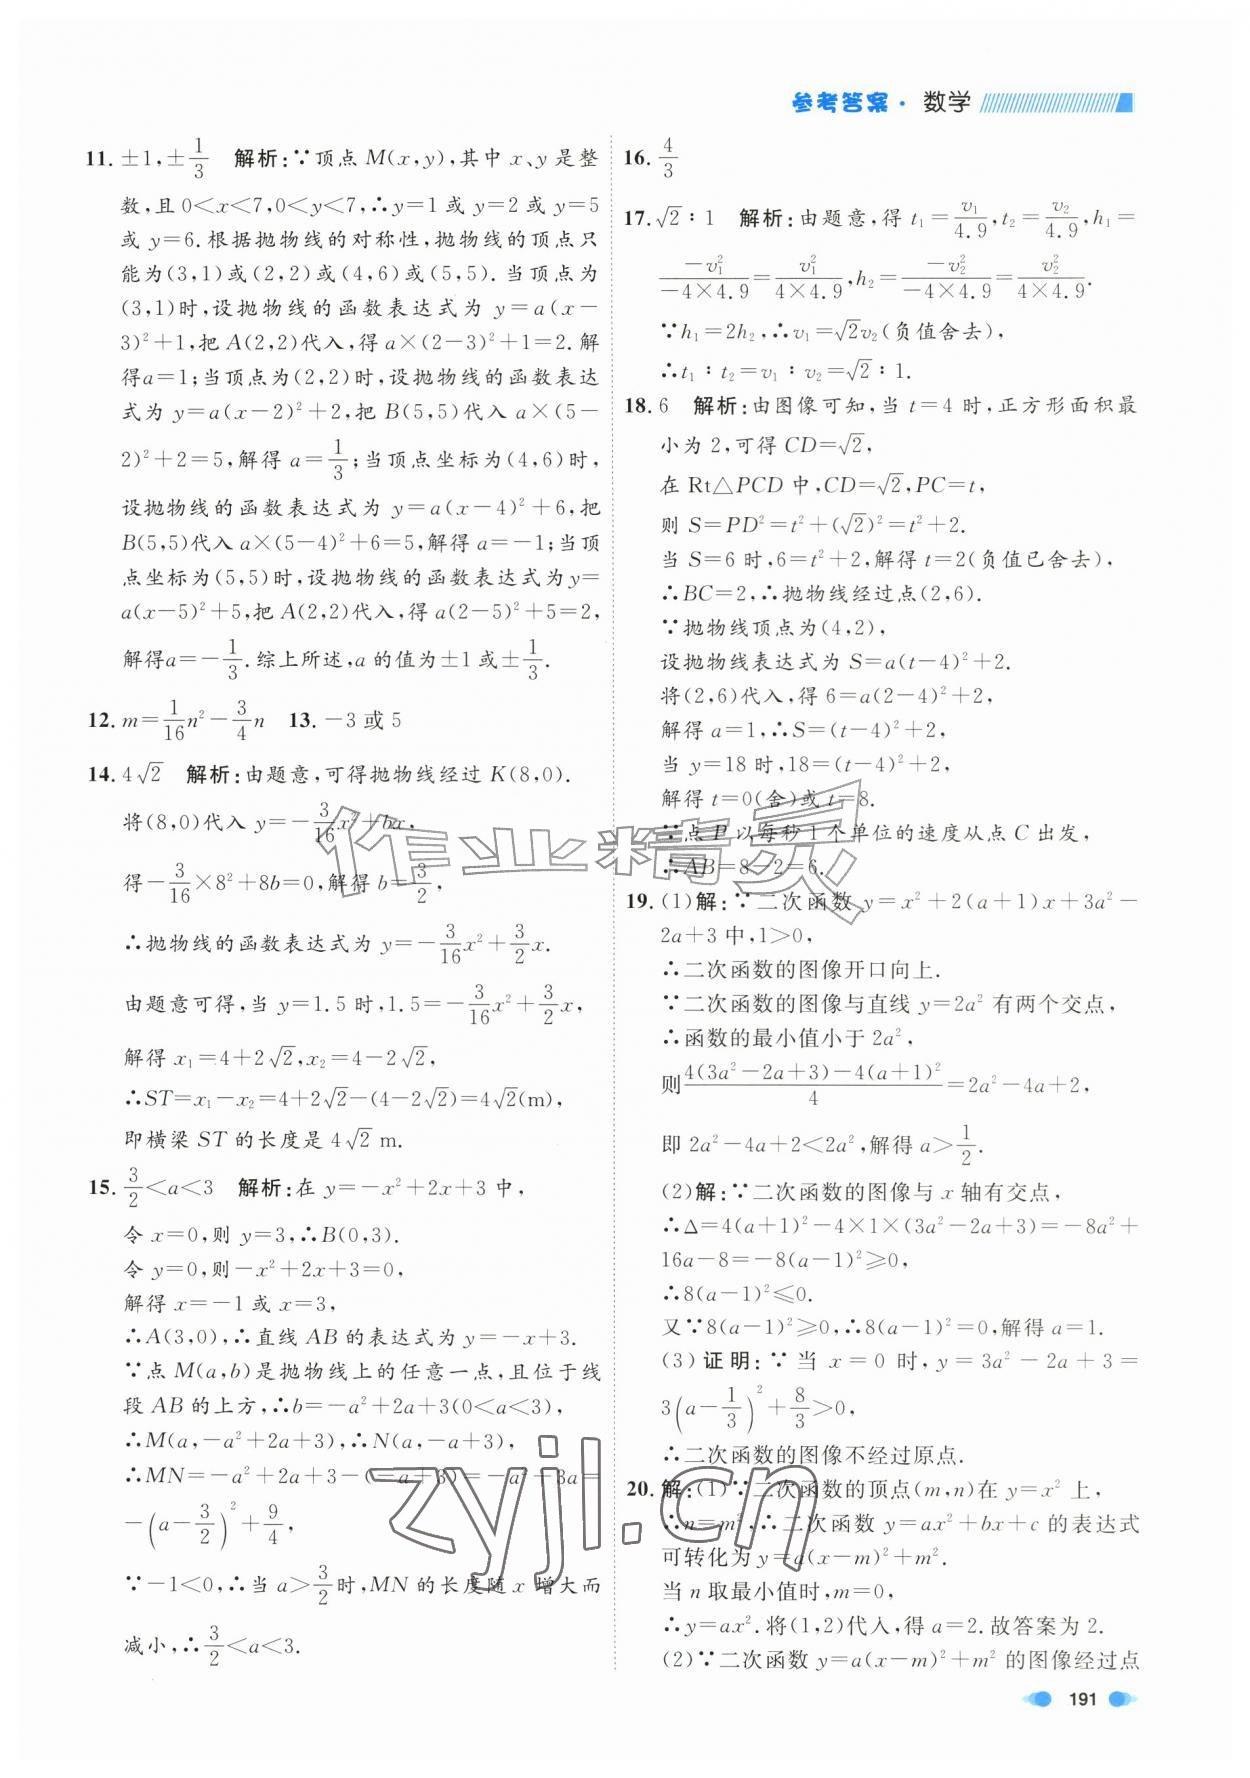 参考答案·数学
11. ±1,±1/3 解析:∵顶点 M(x,y),其中 x、y 是整
数,且 0<x<7,0<y<7,∴y=1 或 y=2 或 y=5
或 y=6.根据抛物线的对称性,抛物线的顶点只
能为(3,1)或(2,2)或(4,6)或(5,5).当顶点为
(3,1)时,设抛物线的函数表达式为 y=a(x-
3)²+1,把 A(2,2)代入,得 a×(2-3)²+1=2.解
得a=1;当顶点为(2,2)时,设抛物线的函数表达
式为 y=a(x-2)²+2,把 B(5,5)代入 a×(5-
2)²+2=5,解得 a=1/3;当顶点坐标为(4,6)时,
设抛物线的函数表达式为 y=a(x-4)²+6,把
B(5,5)代入 a×(5-4)²+6=5,解得 a=-1;当顶
点坐标为(5,5)时,设抛物线的函数表达式为y=
a(x-5)²+5,把 A(2,2)代入,得 a(2-5)²+5=2,
解得a=-1/3.综上所述,a 的值为±1 或±1/3.
12. m=1/16n²-3/4n 13. -3 或 5
14. 4√2 解析:由题意,可得抛物线经过 K(8,0).
将(8,0)代入 y=-3/16x²+bx,
得-3/16×8²+8b=0,解得 b=3/2,
∴抛物线的函数表达式为 y=-3/16x²+3/2x.
由题意可得,当 y=1.5 时,1.5=-3/16x²+3/2x,
解得 x₁=4+2√2,x₂=4-2√2,
∴ST=x₁-x₂=4+2√2-(4-2√2)=4√2(m),
即横梁 ST 的长度是 4√2 m.
15. 3/2<a<3 解析:在 y=-x²+2x+3 中,
令 x=0,则 y=3,∴B(0,3).
令 y=0,则-x²+2x+3=0,
解得 x=-1 或 x=3,
∴A(3,0),∴直线 AB 的表达式为 y=-x+3.
∵点 M(a,b)是抛物线上的任意一点,且位于线
段 AB 的上方,∴b=-a²+2a+3(0<a<3),
∴M(a,-a²+2a+3),∴N(a,-a+3),
∴MN=-a²+2a+3-(-a+3)=-a²+3a=
-(a-3/2)²+9/4,
∵-1<0,∴当 a>3/2时,MN 的长度随 x 增大而
减小,∴3/2<a<3.
16. 4/3
17. √2∶1 解析:由题意,得 t₁=v₁/4.9,t₂=v₂/4.9,h₁=
-v₁²/-4×4.9=v₁²/4×4.9,h₂=-v₂²/-4×4.9=v₂²/4×4.9.
∵h₁=2h₂,∴v₁=√2v₂(负值舍去),
∴t₁∶t₂=v₁∶v₂=√2∶1.
18. 6 解析:由图像可知,当 t=4 时,正方形面积最
小为 2,可得 CD=√2,
在 Rt△PCD 中,CD=√2,PC=t,
则 S=PD²=t²+(√2)²=t²+2.
当 S=6 时,6=t²+2,解得 t=2(负值已舍去),
∴BC=2,∴抛物线经过点(2,6).
∵抛物线顶点为(4,2),
设抛物线表达式为 S=a(t-4)²+2.
将(2,6)代入,得 6=a(2-4)²+2,
解得 a=1,∴S=(t-4)²+2,
当 y=18 时,18=(t-4)²+2,
解得 t=0(舍)或 t=8.
∵点 P 以每秒 1 个单位的速度从点 C 出发,
∴AB=8-2=6.
19. (1)解:∵二次函数 y=x²+2(a+1)x+3a²-
2a+3 中,1>0,
∴二次函数的图像开口向上.
∵二次函数的图像与直线 y=2a² 有两个交点,
∴函数的最小值小于 2a²,
则4(3a²-2a+3)-4(a+1)²/4=2a²-4a+2,
即 2a²-4a+2<2a²,解得 a>1/2.
(2)解:∵二次函数的图像与 x 轴有交点,
∴Δ=4(a+1)²-4×1×(3a²-2a+3)=-8a²+
16a-8=-8(a-1)²≥0,
∴8(a-1)²≤0.
又∵8(a-1)²≥0,∴8(a-1)²=0,解得 a=1.
(3)证明:∵当 x=0 时,y=3a²-2a+3=
3(a-1/3)²+8/3>0,
∴二次函数的图像不经过原点.
20. 解:(1)∵二次函数的顶点(m,n)在 y=x² 上,
∴n=m²,∴二次函数 y=ax²+bx+c 的表达式
可转化为 y=a(x-m)²+m².
当 n 取最小值时,m=0,
∴y=ax².将(1,2)代入,得 a=2.故答案为 2.
(2)∵二次函数 y=a(x-m)²+m² 的图像经过点
作业精灵
zyjl.cn
191